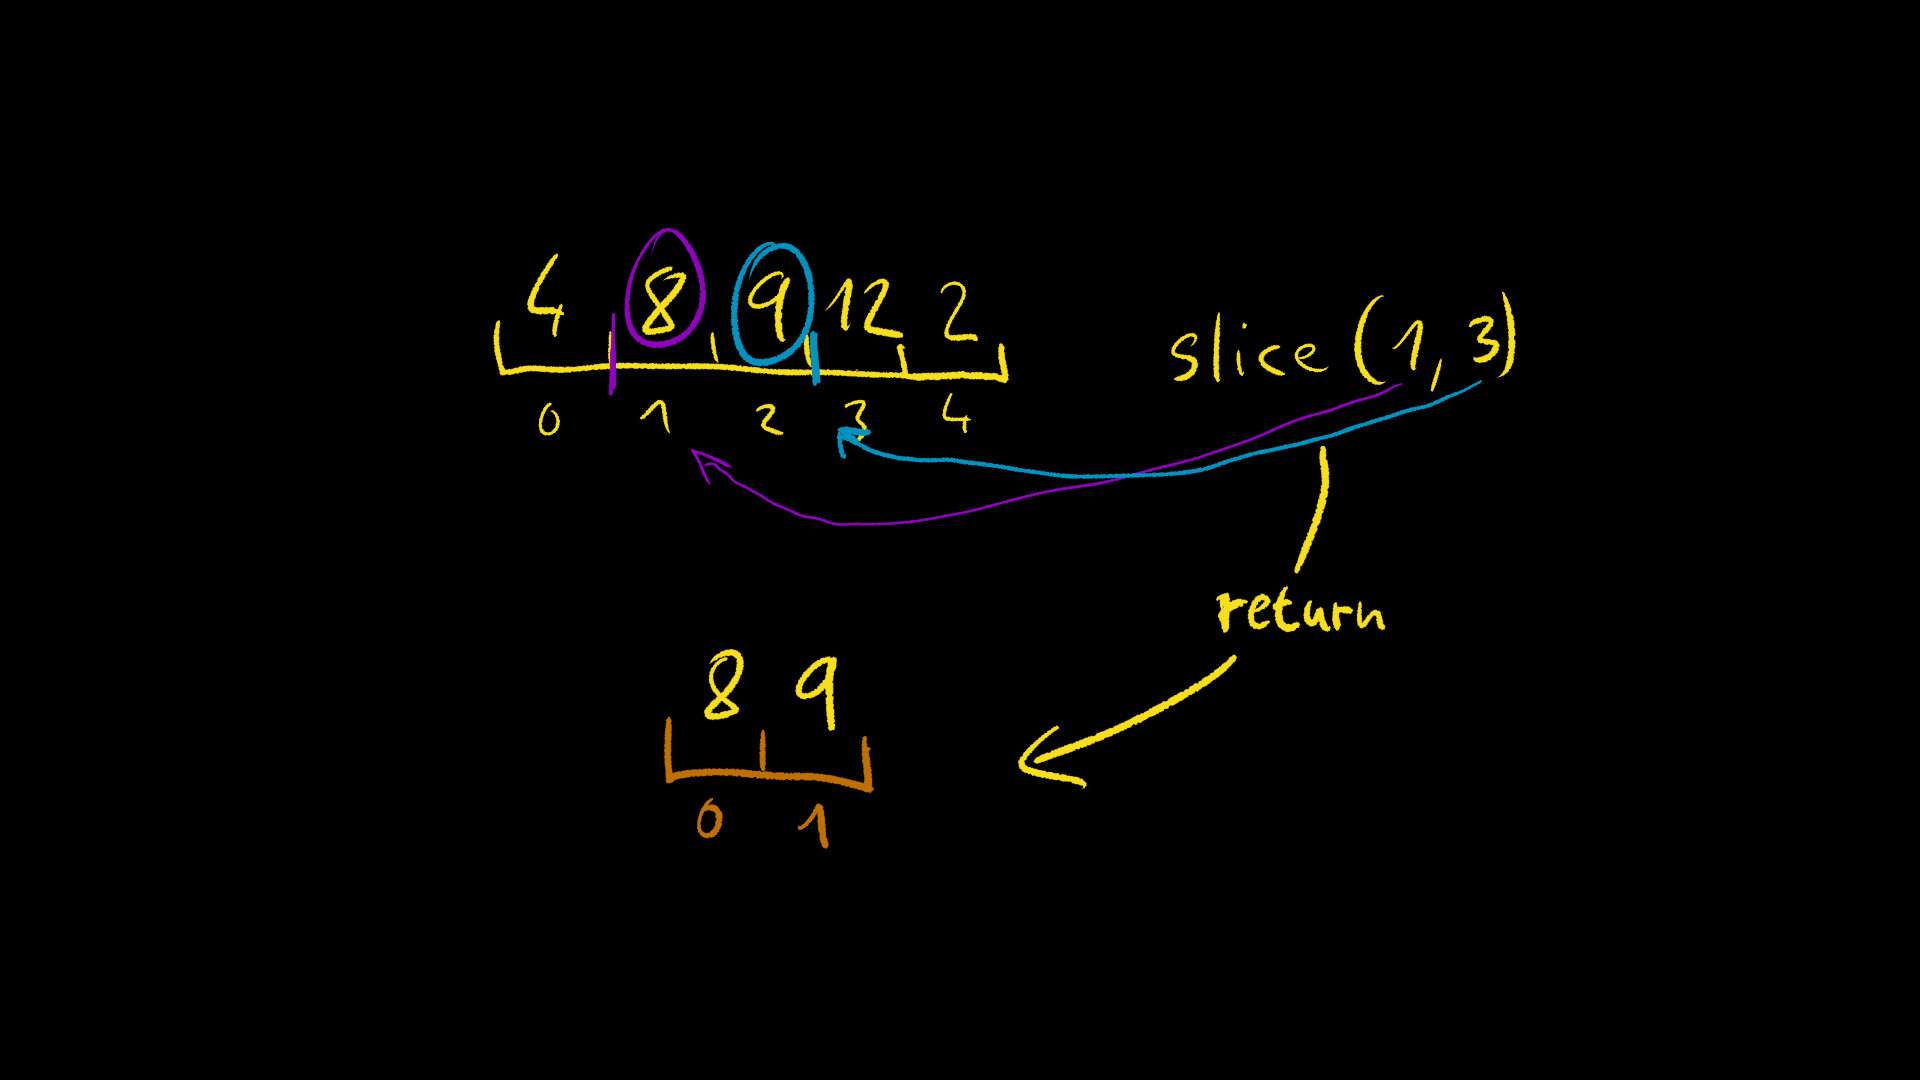 4 8 9 12 2
0 1 2 3 4
slice (1, 3)
return
8 9
0 1